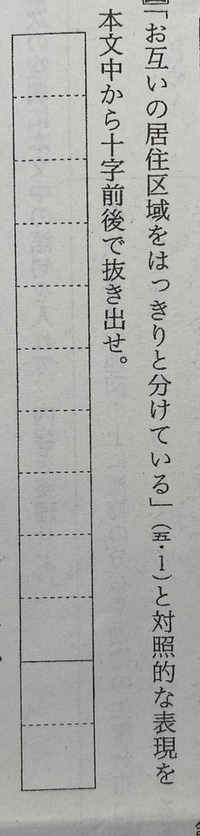 「お互いの居住区域をはっきりと分けている」(五・1)と対照的な表現を
本文中から十字前後で抜き出せ。